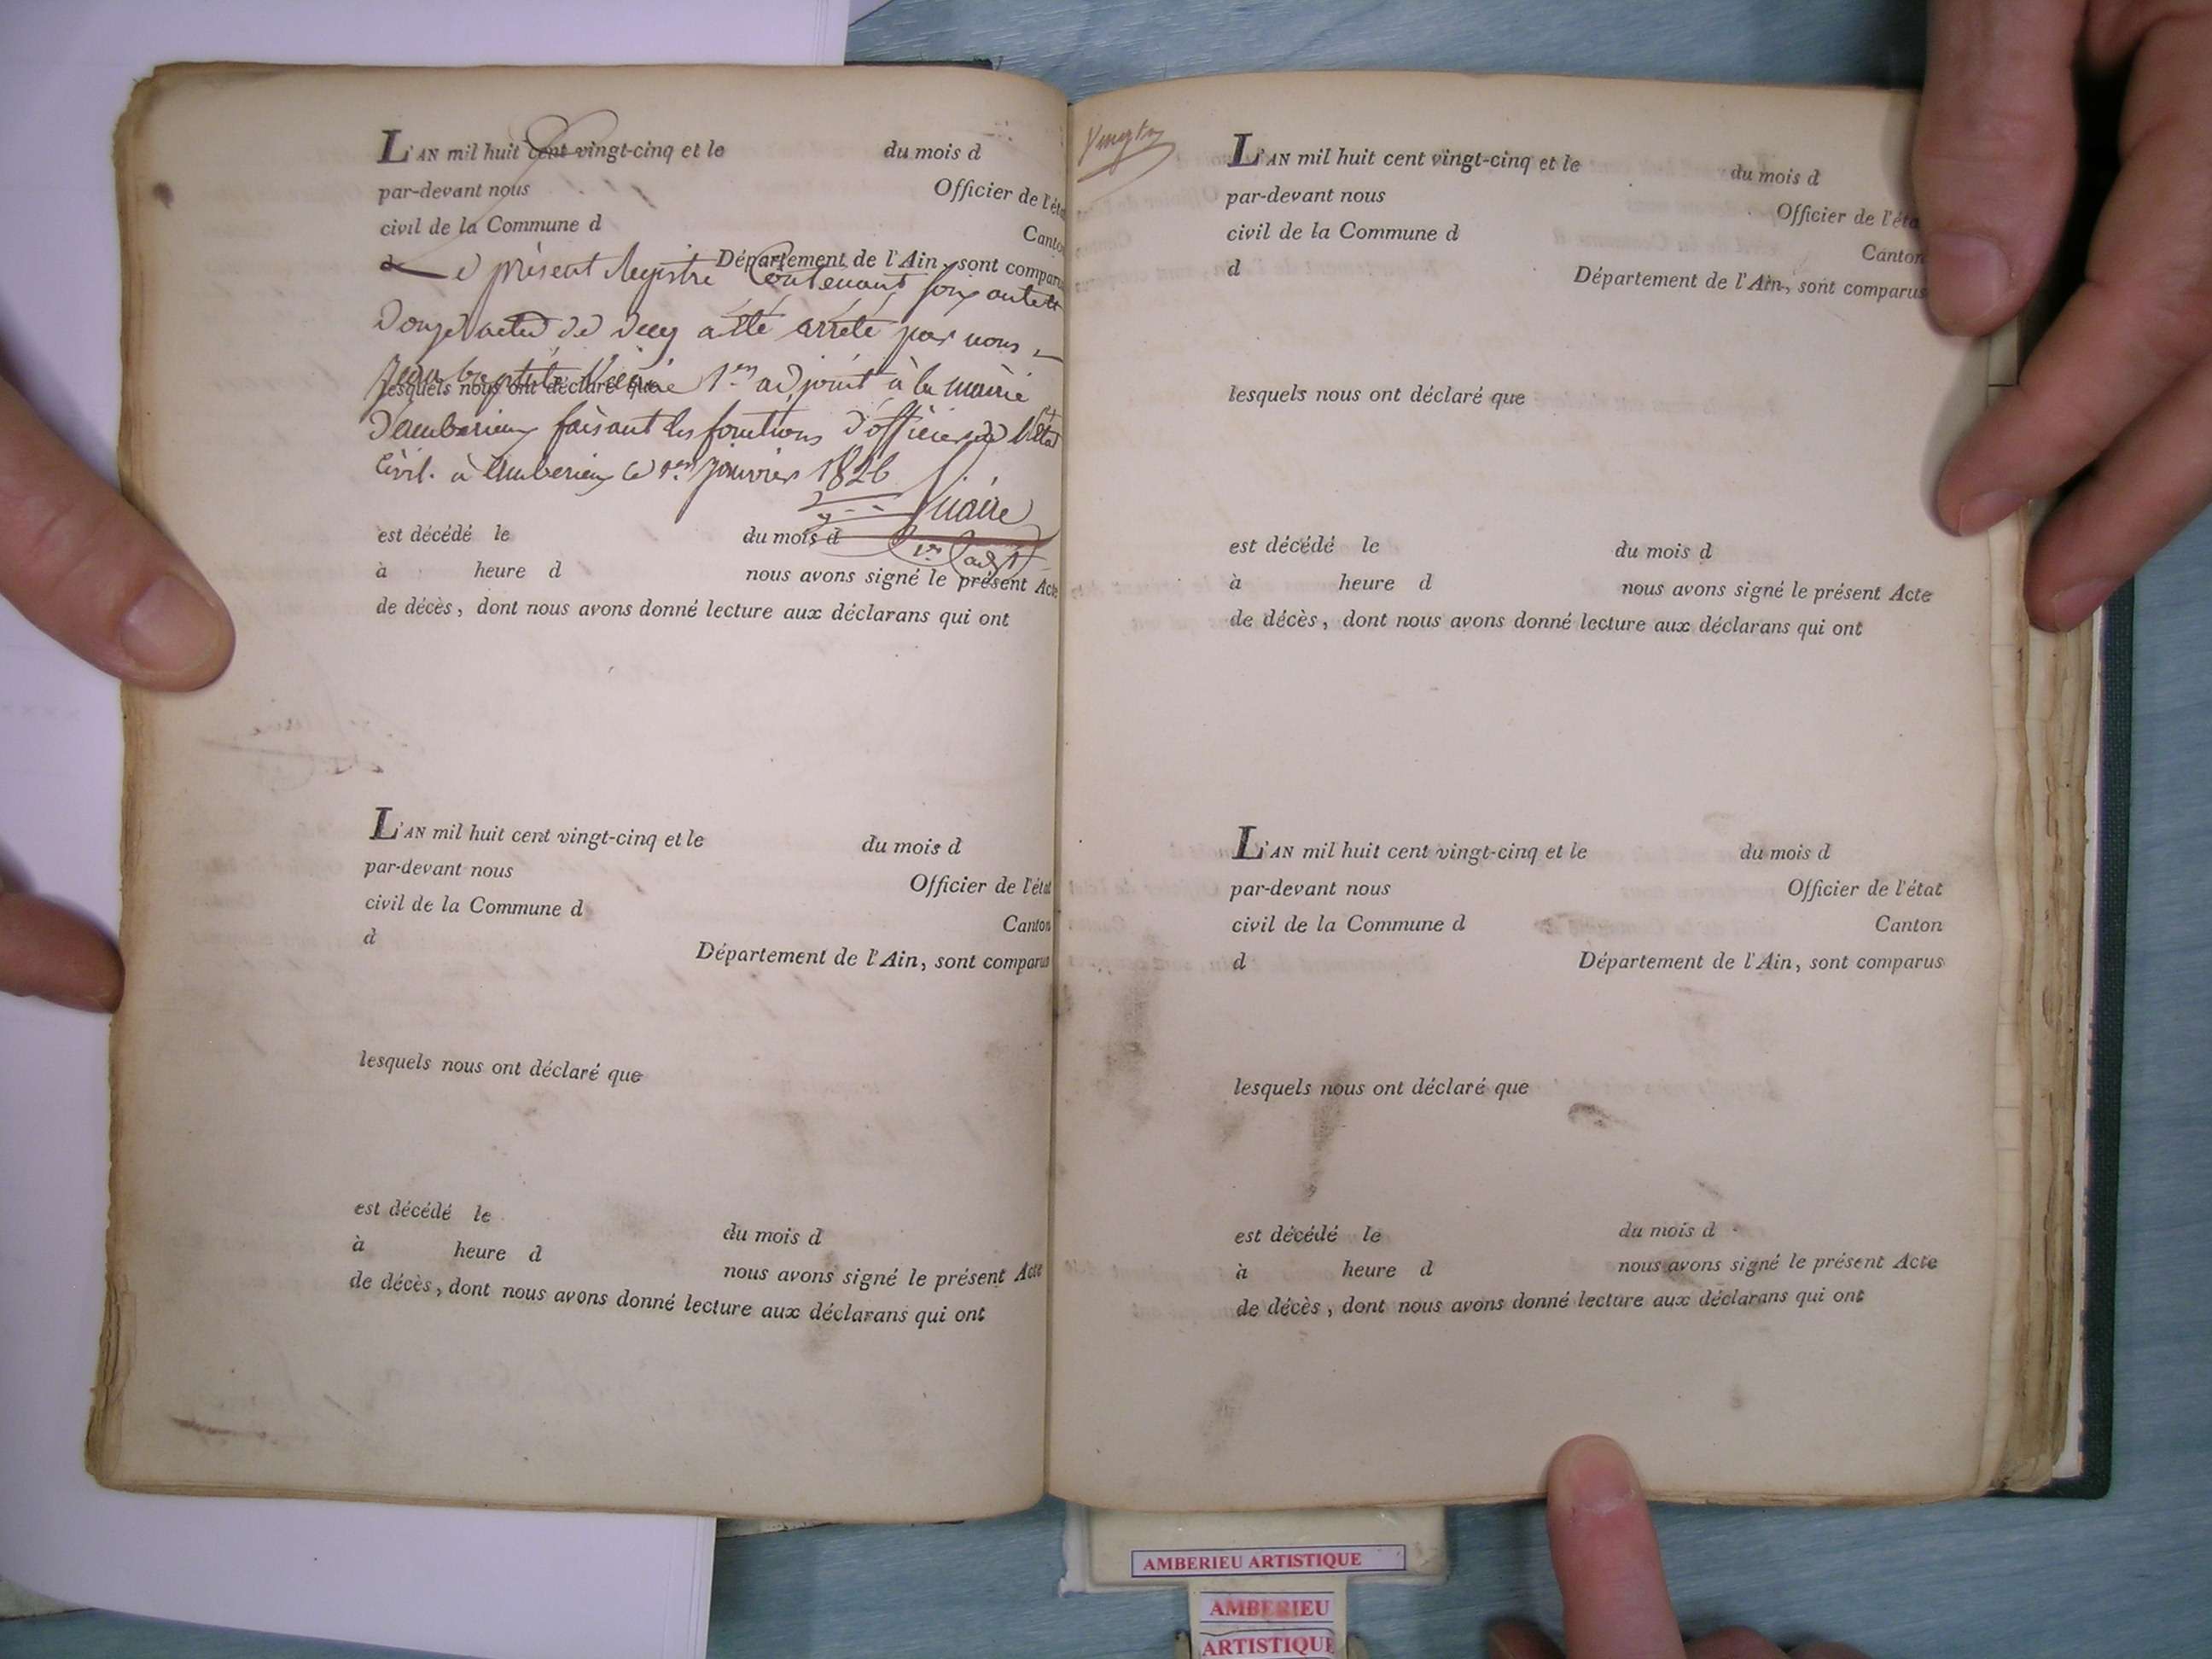 L'AN mil huit cent vingt-cinq et le du mois d
par-devant nous Officier de l'état
civil de la Commune d Canton
d Département de l'Ain, sont comparus
Le présent Registre Contenant soixante et
Douze actes de décès a été arrêté par nous
lesquels nous ont déclaré que
Jean baptiste 1er adjoint à la mairie
D'amberieux faisant les fonctions d'officier de l'état
Civil. à amberieux le 1er janvier 1826
1er adjt
est décédé le du mois d
à heure d nous avons signé le présent Acte
de décès, dont nous avons donné lecture aux déclarans qui ont
L'AN mil huit cent vingt-cinq et le du mois d
par-devant nous Officier de l'état
civil de la Commune d Canton
d Département de l'Ain, sont comparus
lesquels nous ont déclaré que
est décédé le du mois d
à heure d nous avons signé le présent Acte
de décès, dont nous avons donné lecture aux déclarans qui ont
L'AN mil huit cent vingt-cinq et le du mois d
par-devant nous Officier de l'éta
civil de la Commune d Canton
d Département de l'Ain, sont comparus
lesquels nous ont déclaré que
est décédé le du mois d
à heure d nous avons signé le présent Acte
de décès, dont nous avons donné lecture aux déclarans qui ont
L'AN mil huit cent vingt-cinq et le du mois d
par-devant nous Officier de l'état
civil de la Commune d Canton
d Département de l'Ain, sont comparus
lesquels nous ont déclaré que
est décédé le du mois d
à heure d nous avons signé le présent Acte
de décès, dont nous avons donné lecture aux déclarans qui ont
AMBERIEU ARTISTIQUE
AMBERIEU
ARTISTIQUE